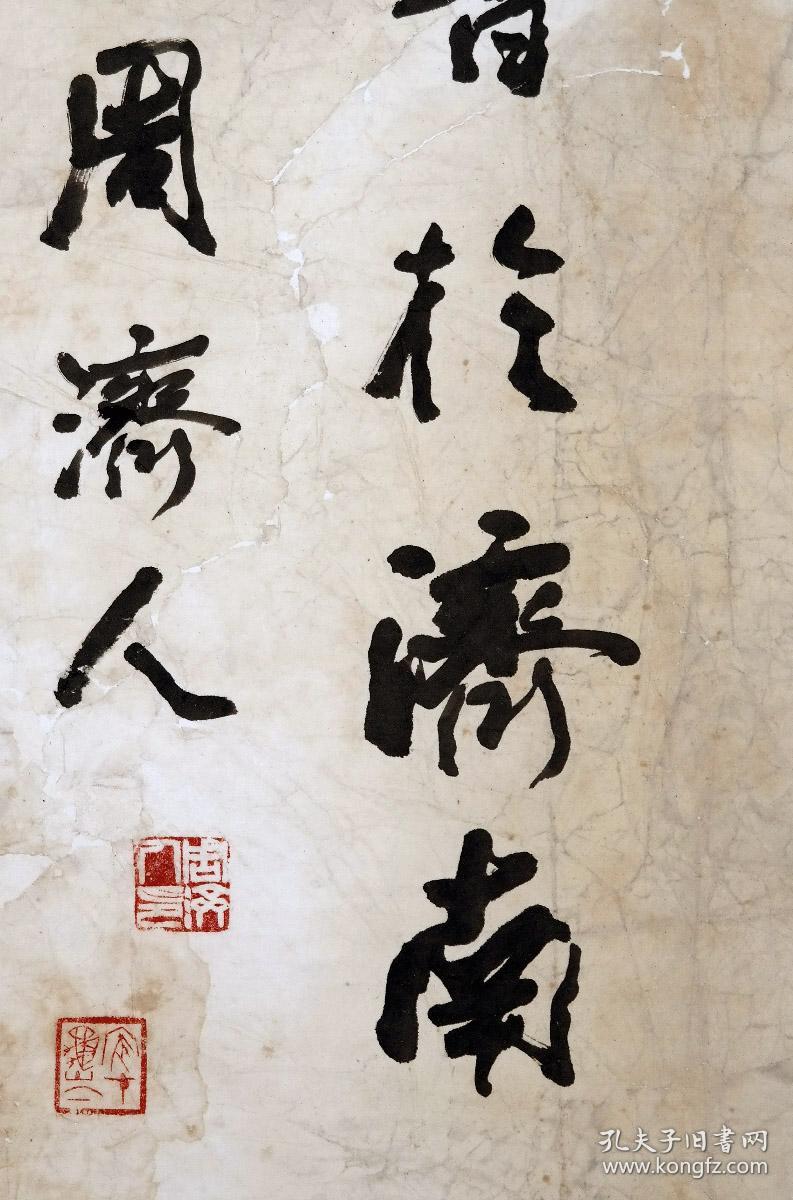 於濟南
周濟人
孔夫子旧书网
www.kongfz.com